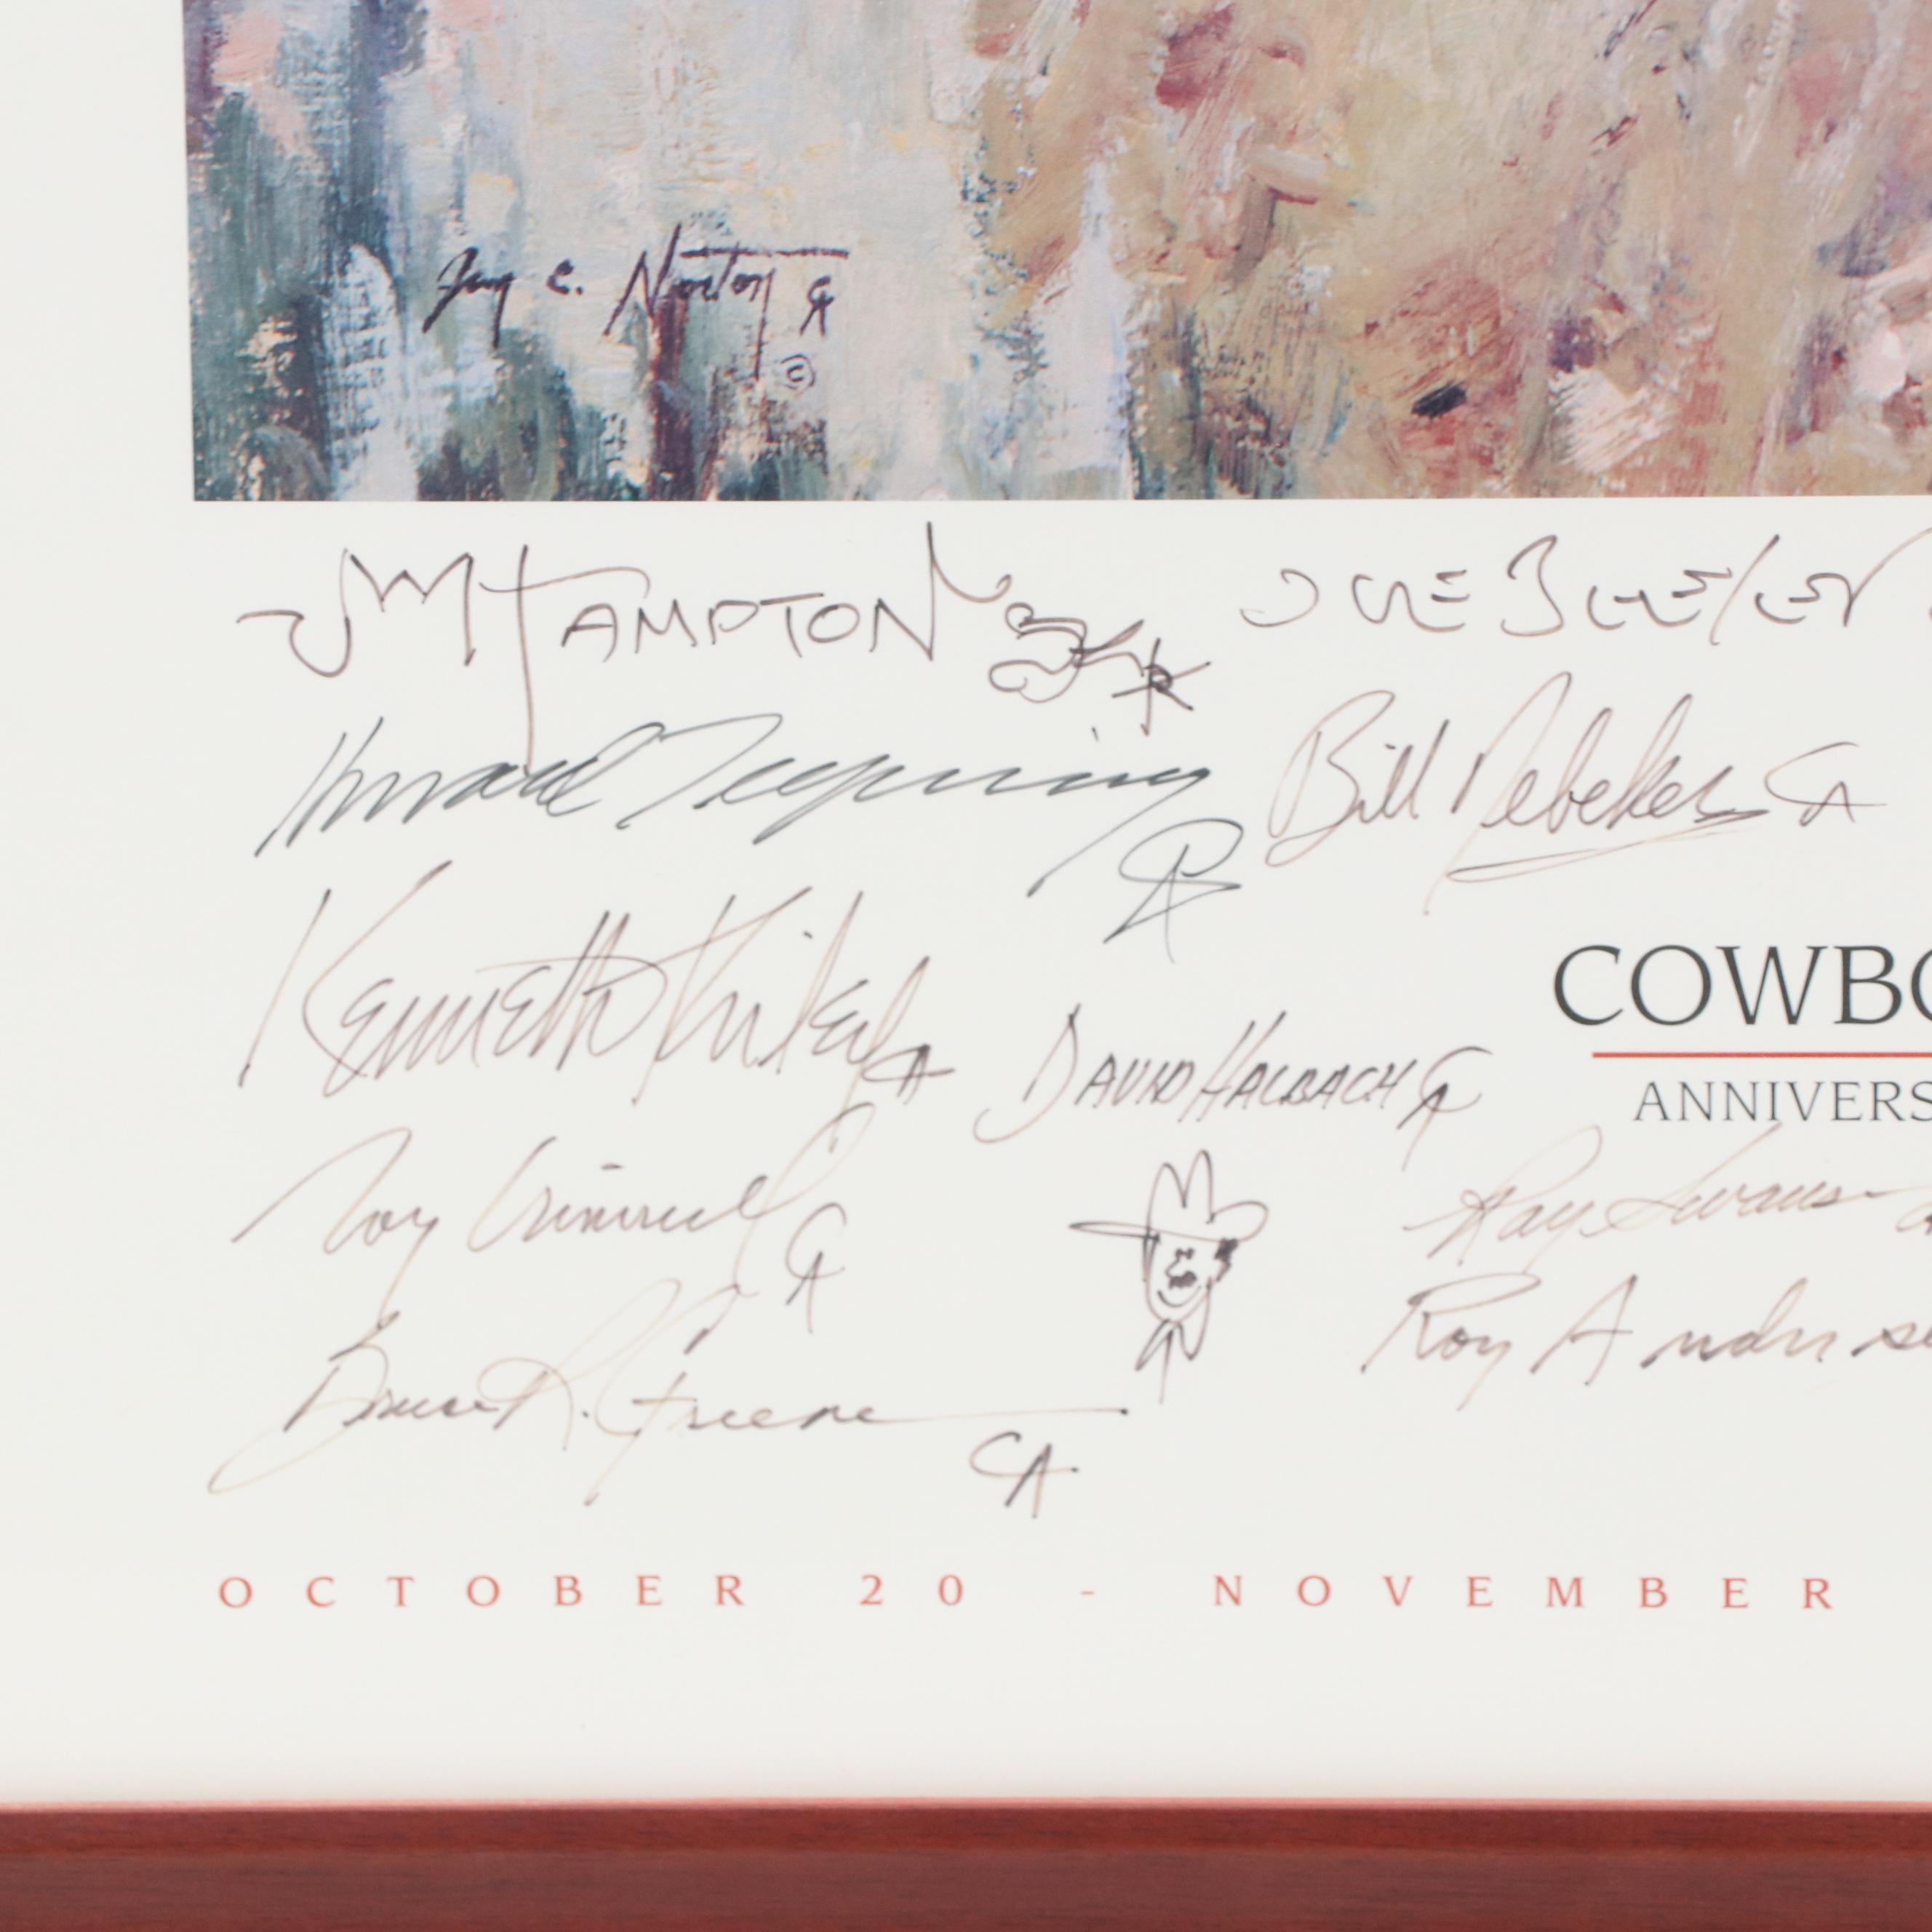 Jim C. Norton CA
©
JW HAMPTON CA
JOE BEELER
Howard Terpning CA
Bill Nebeker CA
Kenneth Riley CA
COWBO
DAVID HALBACH CA
ANNIVERS
Ray Swanson
Roy Andersen
Bruce R. Greene
CA
OCTOBER 20 - NOVEMBER